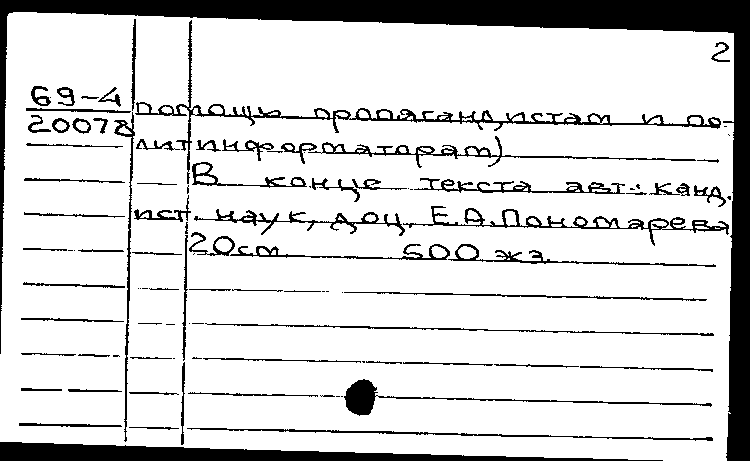 2
69-4
20078
помощь пропагандистам и по-
литинформаторам)
В конце текста авт.: канд.
ист. наук, доц. Е.А.Пономарева
20см 600 экз.